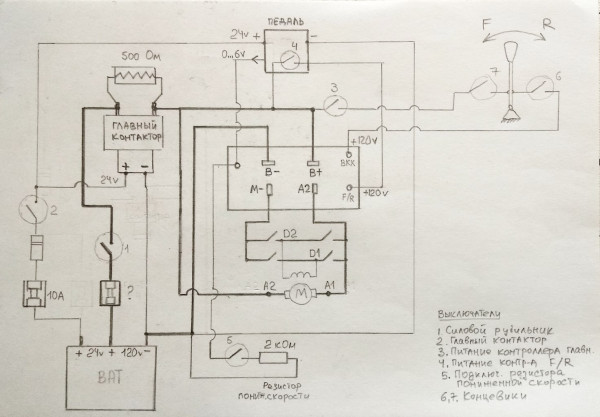 ПЕДАЛЬ
24v + −
0...6v
4
F R
500 Ом
7
6
3
ГЛАВНЫЙ
КОНТАКТОР
+ −
24v
+120v
B− B+
ВКК
M− A2
F/R
+120v
2
1
D2
D1
A2 M A1
10А
?
+ 24v + 120v −
BAT
5
2 кОм
Резистор
пониж.скорости
Выключатели
1. Силовой рубильник
2. Главный контактор
3. Питание контроллера главн.
4. Питание контр-а F/R
5. Подключ. резистора
пониженной скорости
6,7. Концевики